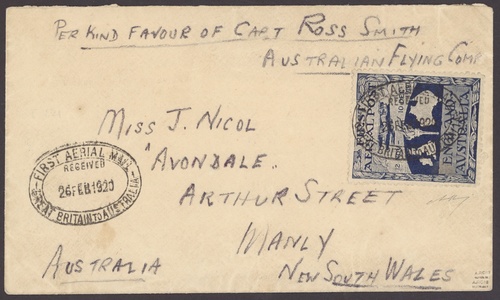 PER KIND FAVOUR OF CAPT ROSS SMITH
AUSTRALIAN FLYING CORP
FIRST AERIAL POST
ENGLAND AUSTRALIA
MISS J. NICOL
"AVONDALE.
ARTHUR STREET
MANLY
NEW SOUTH WALES
AUSTRALIA
FIRST AERIAL MAIL
RECEIVED
26 FEB 1920
GREAT BRITAIN TO AUSTRALIA